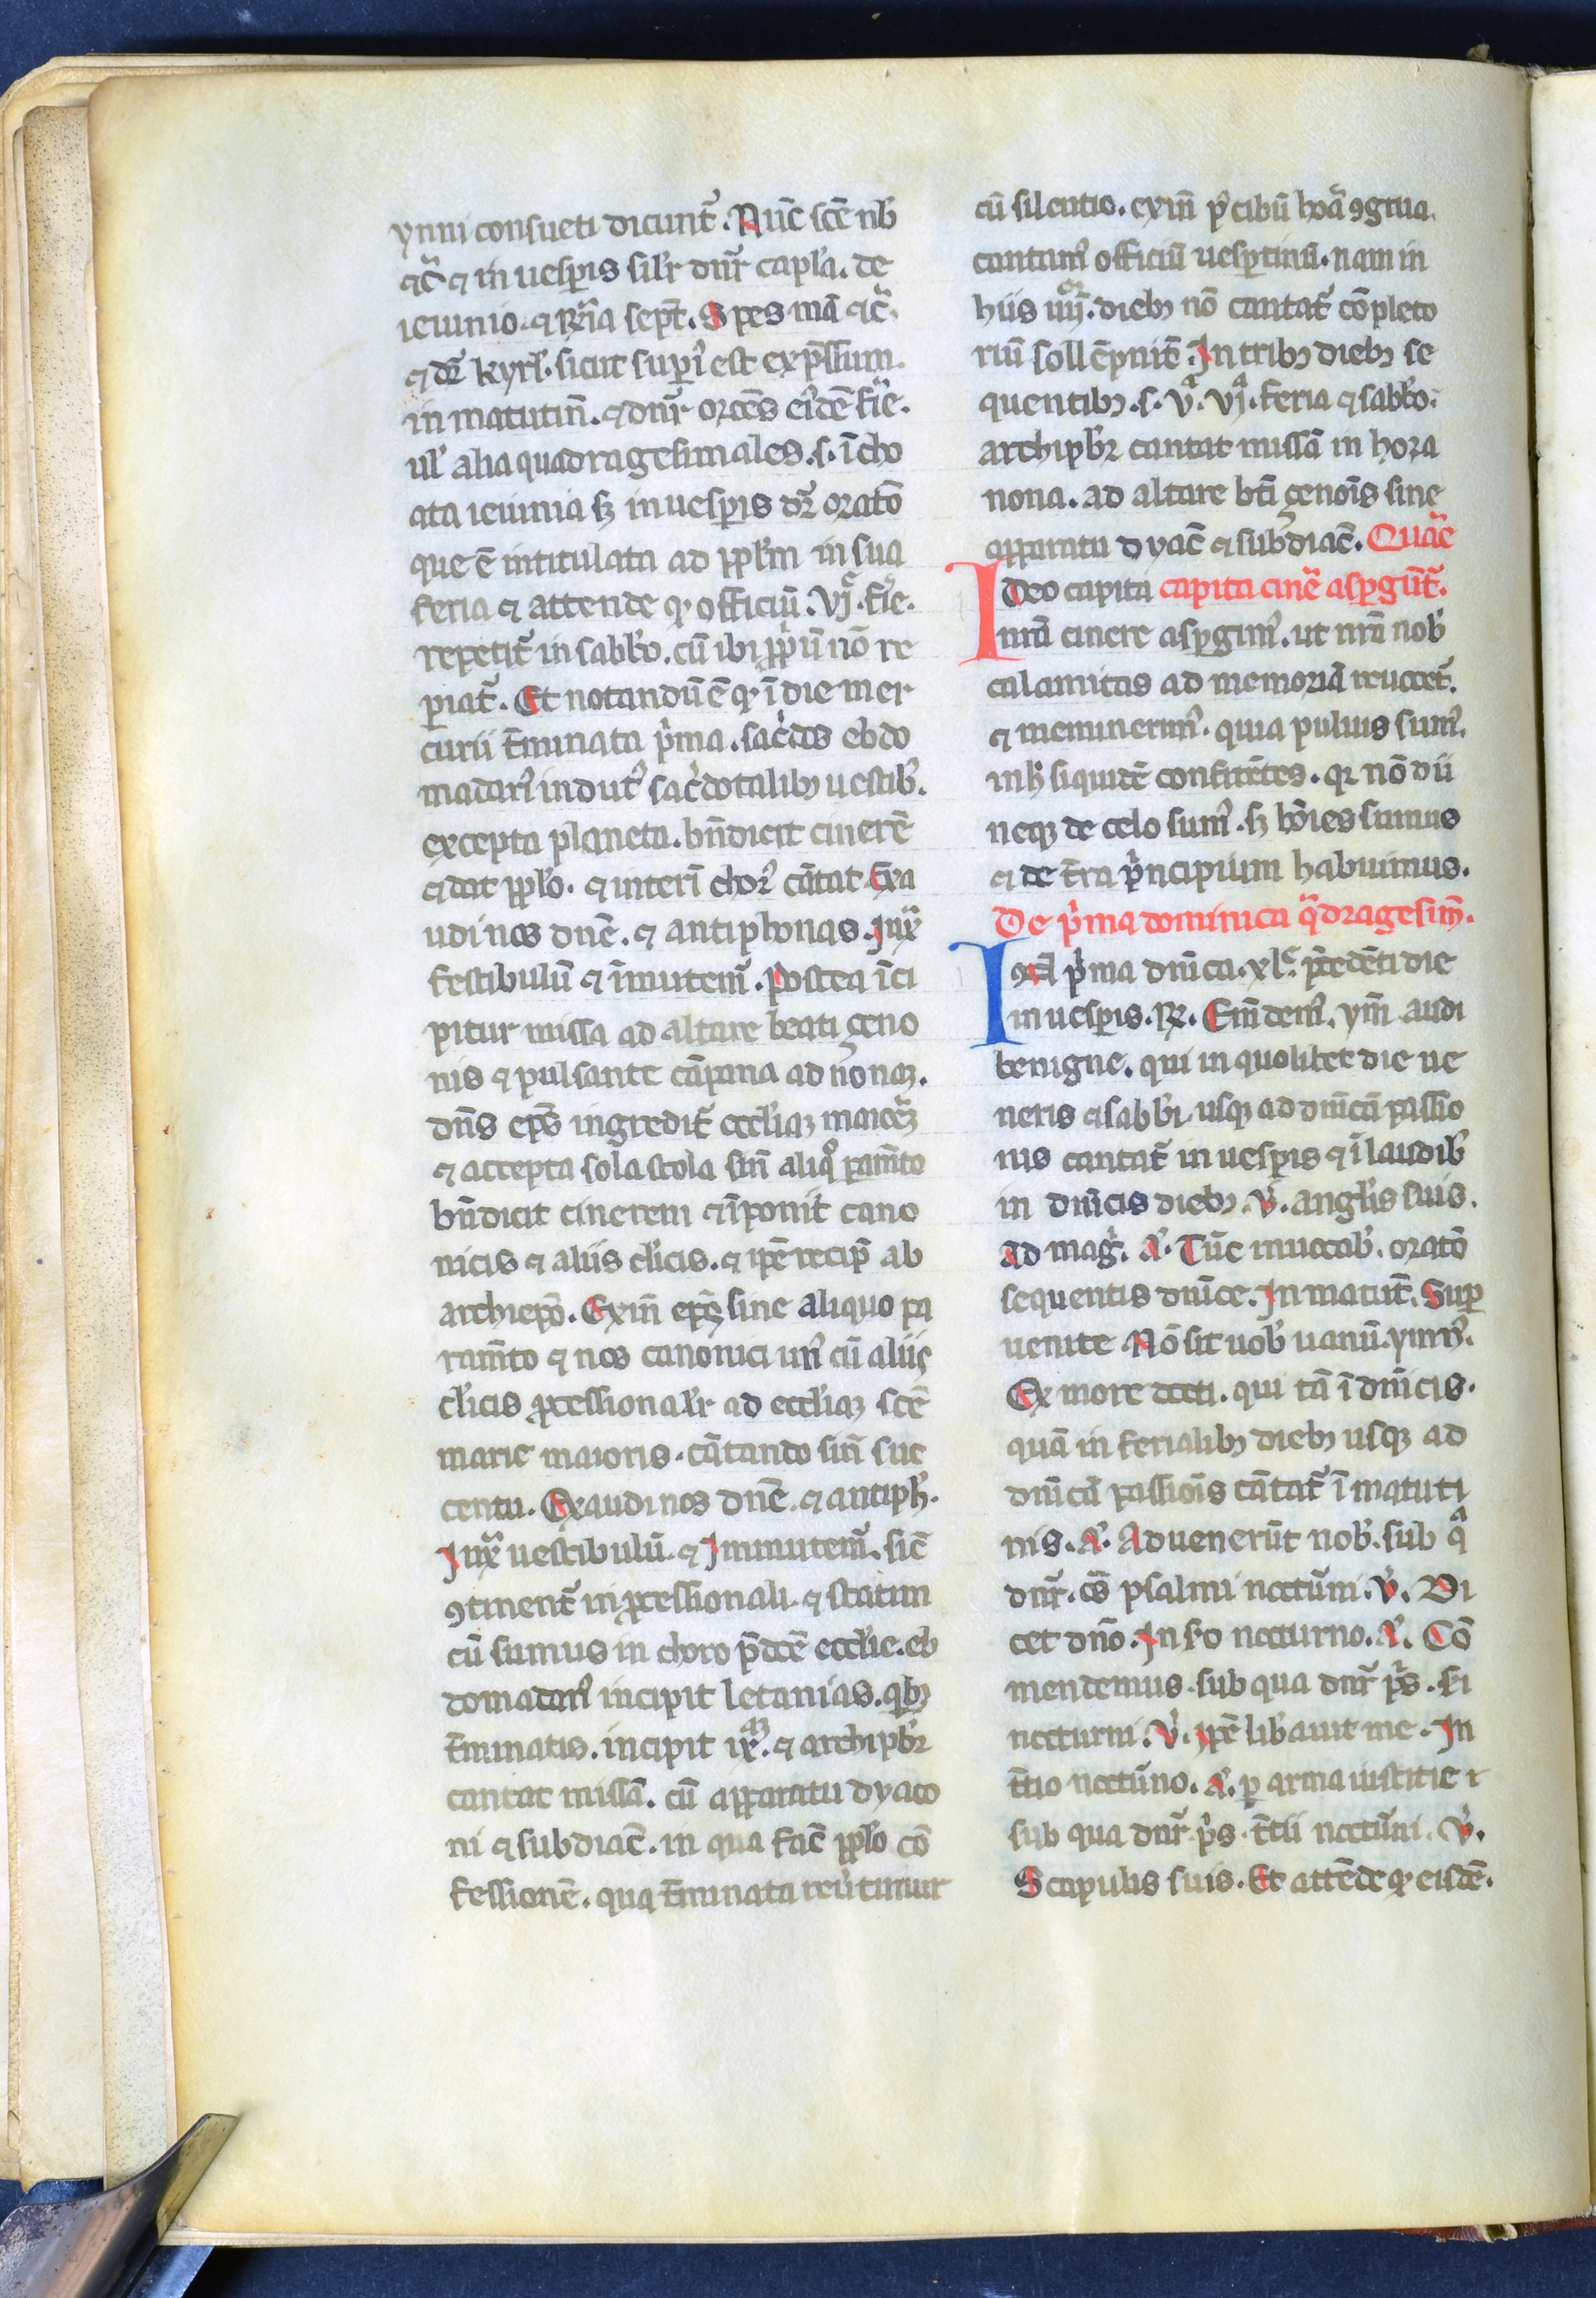 ynni consueti dicunt᷑. Nūc scē nb̄
⁊c̄ ⁊ in uesp̱is sil'r dn̄r capl'a. de
ieiunio. ⁊ Rn̄ia sept̄. Spes mā ⁊c̄.
⁊ dr̄ kyrl'. sicut sup̱i' est exp̄ssum.
in matutin̄. ⁊ dn̄r orōēs ei'dē fīe.
ul' alia quadragesimales. s. īcho
ata ieiunia sꝫ in uesp̱is dr̄ oratō
que ē intitulata ad pp̱l'm in sua
feria ⁊ attende qꝛ officiū. vj̄. fīe.
repetit᷑ in sabb'o. cū ibi pp̄ū nō re
p̱iat᷑. Et notandū ē qꝛ ī die mer
curii t̄minata p̄ma. sac̄dos ebdo
madari' indut' sac̄dotalibꝫ uestib'.
excepta planeta. bn̄dicit cinerē
⁊ dat pp̱l'o. ⁊ interī chor' cātat Exa
udi nos dn̄e. ⁊ antiphonas. Iux̄
festibulū ⁊ īmutem᷑. Postea īci
pitur missa ad altare beati geno
nis ⁊ pulsante cāpana ad nonaꝫ.
dn̄s ep̄s ingredit᷑ eccl'iaꝫ maiōēꝫ
⁊ accepta sola stola sin̄ aliq̊ pam̄to
bn̄dicit cinerem ⁊ īponit cano
nicis ⁊ aliis cl'icis. ⁊ ip̄e recip̄ ab
archiep̄o. Exin̄ ep̄s sine aliquo pa
ram̄to ⁊ nos canonici un̄' cū aliis
cl'icis ꝓcessional'r ad eccl'iaꝫ scē
marie maioris. cātando sin̄ suc
centu. Exaudi nos dn̄e. ⁊ antiph'.
Iux̄ uestibulū. ⁊ Immutem᷑. sic̄
ꝯtinent᷑ in ꝓcessionali. ⁊ statim
cū sumus in choro p̄dc̄ē eccl'ie. eb
domadari' incipit letanias. qꝫbꝫ
t̄minatis. incipit ix̄. ⁊ archipb'r
cantat missā. cū apparatu dyaco
ni ⁊ subdiac̄. in qua fac̄ pp̱l'o cō
fessionē. qua t̄minata reūtimur
cū silentio. exin̄ p' cibū horā ꝯgrua.
cantam' officiū uesp̱tinū. nam in
hiis iiij̄. diebꝫ nō cantat᷑ cōpleto
riū sollēpnit̄. In tribꝫ diebꝫ se
quentibꝫ. s. vᵃ. vjᵃ. feria ⁊ sabb'o.
archipb'r cantat missā in hora
nona. ad altare bt̄i genōis sine
apparatu dyac̄ ⁊ subdiac̄. Quāē
Ideo capita capita cinē asp̱gūt᷑.
nr̄a cinere asp̱gim'. ut nr̄a nob'
calamitas ad memoriā reuocet᷑.
⁊ meminerim'. quia puluis sum'.
in h' siquidē confitētes. qꝛ nō dii
neqꝫ de celo sum'. sꝫ hōies sumus
⁊ de t̄ra p̄ncipium habuimus.
De p̄ma dominica q̄dragesim̄.
IN p̄ma dn̄ica. xlᵉ. p̄cedēti die
in uesp̱is. R̷. Emēdem'. ym̄. audi
benigne. qui in quolibet die ue
neris ⁊ sabb'i. usqꝫ ad dn̄icā passio
nis cantat᷑ in uesp̱is ⁊ ī laudib'
in dn̄icis diebꝫ. v̇. angl'is suis.
Ad mag̅. A̅. Tūc inuocab'. oratō
sequentis dn̄ice. In matut̄. Sup̱
uenite Nō sit uob' uanū. ymn'.
Ex more docti. qui tā ī dn̄icis.
quā in ferialibꝫ diebꝫ usqꝫ ad
dn̄icā passiōis cātat᷑ ī matuti
nis. A̅. Aduenerūt nob'. sub qᵃ
dn̄r. ōs psalmi noctūni. v̇. Di
cet dn̄o. In s'o nocturno. A̅. Cō
mendemus. sub qua dn̄r p̄s. s'i
nocturni. v̇. ip̄e lib'auit me. In
t̄tio noctūno. A̅. p̱ arma iustitie
sub qua dn̄r p̄s. t̄tii noctūni. v̇.
Scapulis suis. Et attēde qꝛ eisdē.